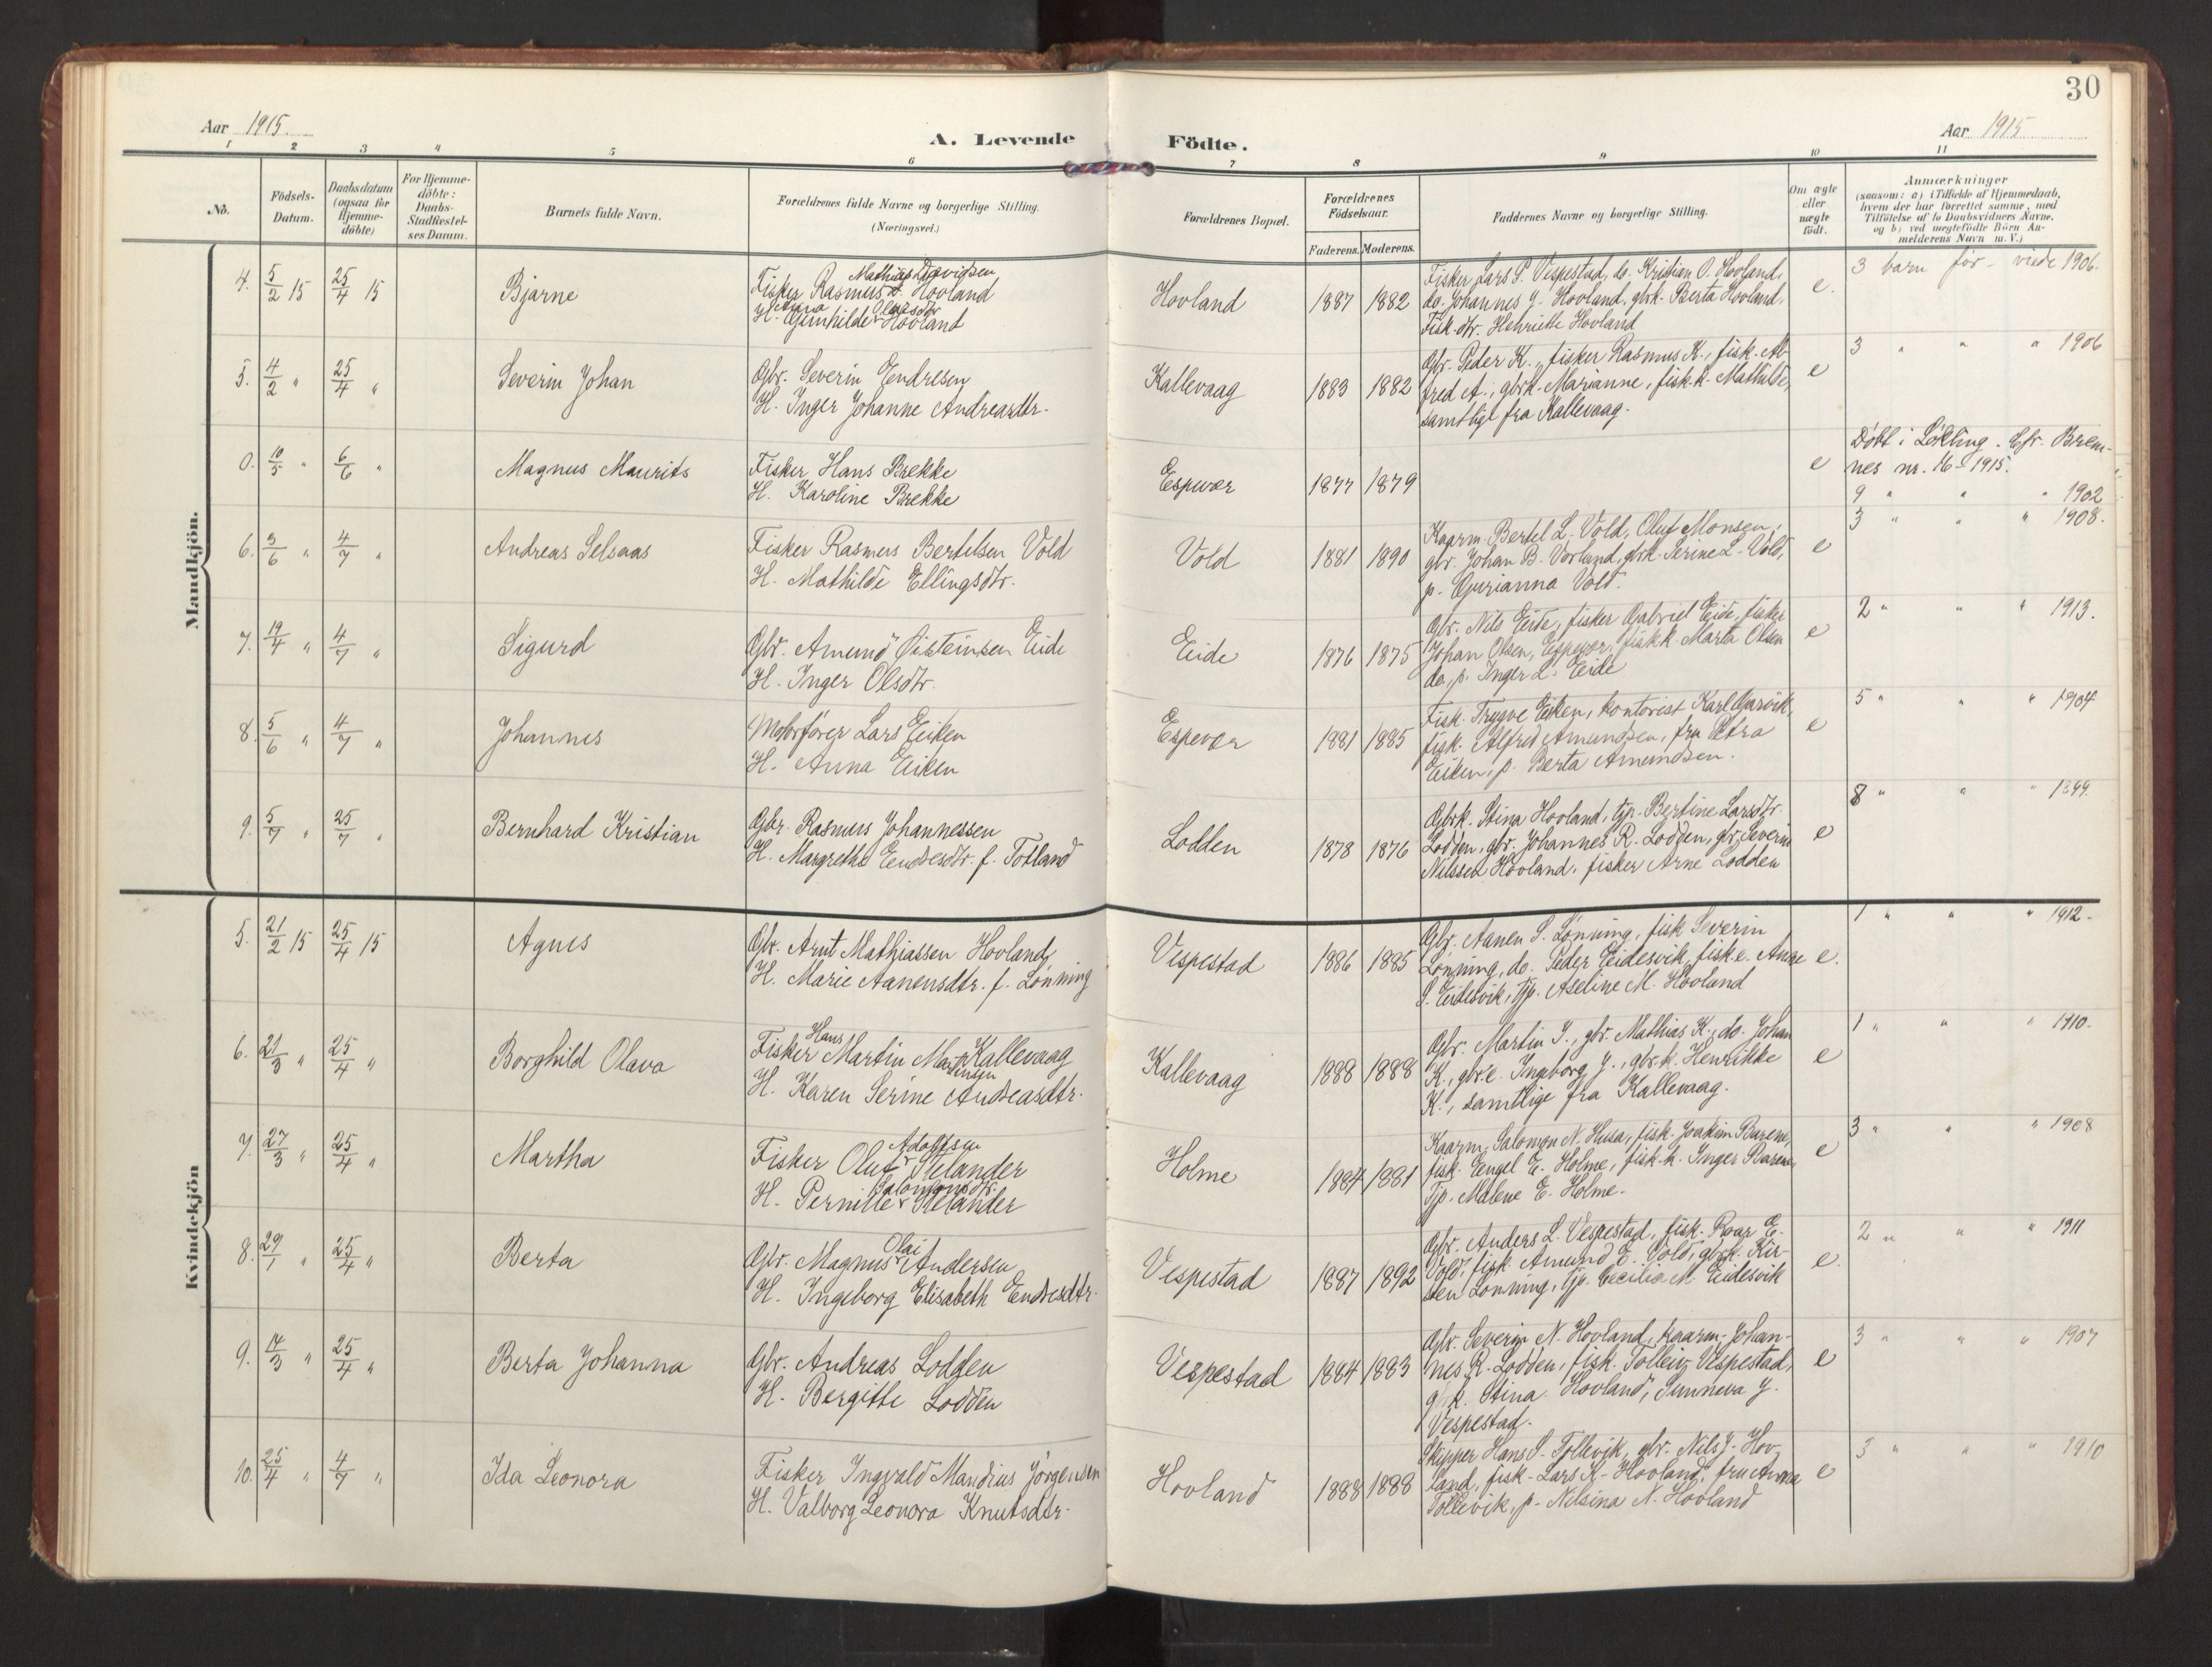 30
Aar 1915. A. Levende Födte. Aar 1915
1 2 3 4 5 6 7 8 9 10 11
No.
Födsels-
Datum.
Daabsdatum
(ogsaa for
Hjemme-
döbte)
For Hjemme-
döbte:
Daabs-
Stadfæstel-
ses Datum.
Barnets fulde Navn.
Forældrenes fulde Navne og borgerlige Stilling.
(Næringsvei.)
Forældrenes Bopæl.
Forældrenes
Födselsaar.
Faderens. Moderens.
Faddernes Navne og borgerlige Stilling.
Om ægte
eller
uægte
födt.
Anmærkninger
(saasom: a) i Tilfælde af Hjemmedaab,
hvem der har forrettet samme, med
Tilföielse af to Daabsvidners Navne,
og b) ved uegtefödte Börn An-
melderens Navn m. V.)
Mandkjön.
4. 5/2 15 25/4 15 Bjarne
Mathias Davidsen
Fisker Rasmus D. Hovland
Anna Olaisdtr
H. Gunhilde Hovland
Hovland 1887 1882
Fisker Lars P. Vespestad, do. Kristian O. Hovland,
do. Johannes J. Hovland, gbrk. Berta Hovland,
Fisk.dtr. Henriette Hovland
e. 3 barn før - viede 1906.
5. 4/2 " 25/4 " Severin Johan
Gbr. Severin Endresen
H. Inger Johanne Andreasdtr.
Kallevaag 1883 1882
Gbr. Peder K., fisker Rasmus K., fisk. Al-
fred A., gbrk. Marianne, fisk.k. Mathilde,
samtligt fra Kallevaag.
e 3 " " " 1906
0. 10/5 " 6/6 " Magnus Maurits
Fisker Hans Brekke
H. Karoline Brekke
Espevær 1877 1879
e Døbt i Løkling. Cfr. Brem-
nes nr. 16 - 1915.
9 " " " 1902
6. 3/6 " 4/7 " Andreas Selsaas
Fisker Rasmus Bertelsen Vold
H. Mathilde Ellingsdtr.
Vold 1881 1890
Kaarm. Bertel L. Vold, Oluf Monsen,
gbr. Johan B. Vorland, gbrk. Serine L. Vold,
p. Gurianna Vold.
e 3 " " " 1908.
7. 19/4 " 4/7 " Sigurd
Gbr. Amund Øisteinsen Eide
H. Inger Olsdtr.
Eide 1876 1875
Gbr. Nils Eide, fisker Gabriel Eide, fisker
Johan Olsen, Espevær, fisk.k. Marta Olsen
do, p. Inger L. Eide
e 2 " " " 1913.
8. 5/6 " 4/7 " Johannes
Motorfører Lars Eiken
H. Anna Eiken
Espevær 1881 1885
Fisk. Trygve Eiken, kontorist Karl
fisk. Alfred Amundsen, fru Petra
Eiken, p. Berta Amundsen.
e 5 " " " 1904
9. 5/7 " 25/7 " Bernhard Kristian
Gbr. Rasmus Johannessen
H. Margrethe Endresdtr. f. Totland
Lodden 1878 1876
Gbrk. Stina Hovland, tjp. Bertine Larsdtr.
Lodden, gbr. Johannes R. Lodden, gbr. Severin
Nilssen Hovland, fisker Arne Lodden
e 8 " " " 1899.
Kvindekjön
5. 21/2 15 25/4 15 Agnes
Gbr. Arnt Mathiassen Hovland
H. Marie Aanensdtr. f. Lønning
Vespestad 1886 1885
Gbr. Aanen S. Lønning, fisk Severin
Lønning, do. Peder Eidesvik, fisk.e. Anne
S. Eidesvik, tjp. Aseline M. Hovland
e. 1 " " " 1912.
6. 21/3 " 25/4 " Borghild Olava
Hans
Fisker Martin Martinsen Kallevaag
H. Karen Serine Andreasdtr.
Kallevaag 1888 1888
Gbr. Martin J., gbr. Mathias K., do. Johan
K., gbr.e. Ingeborg J., gbr.k. Henrikke
K., samtlige fra Kallevaag.
e 1 " " " 1910.
7. 27/3 " 25/4 " Martha
Adolfsen
Fisker Oluf Stelander
Salomonsdtr.
H. Pernille Stelander
Holme 1884 1881
Kaarm. Salomon N. Husa, fisk. Joakim Barene,
fisk. Engel E. Holme, fisk.k. Inger Barene,
Tjp. Malene E. Holme.
e 3 " " " 1908
8. 29/1 " 25/4 " Berta
Olai
Gbr. Magnus Andersen
H. Ingeborg Elisabeth Endresdtr.
Vespestad 1887 1892
Gbr. Anders L. Vespestad, fisk. Roar E.
Vold, fisk. Amund E. Vold, gbrk. Kir-
sten Lønning, tjp. Cecilia M. Eidesvik
e. 2 " " " 1911
9. 14/3 " 25/4 " Berta Johanna
Gbr. Andreas Lodden
H. Bergitte Lodden
Vespestad 1884 1883
Gbr. Severin N. Hovland, kaarm. Johan-
nes R. Lodden, fisk. Tolleiv Vespestad,
g.k. Stina Hovland, Sunneva J.
Vespestad.
e 3 " " " 1907
10. 25/4 " 4/7 " Ida Leonora
Fisker Ingvald Mandius Jørgensen
H. Valborg Leonora Knutsdtr.
Hovland 1888 1888
Skipper Hans S. Tollevik, gbr. Nils J. Hov-
land, fisk. Lars K. Hovland, fru Anna
Tollevik, p. Nilsina N. Hovland
e 3 " " " 1910